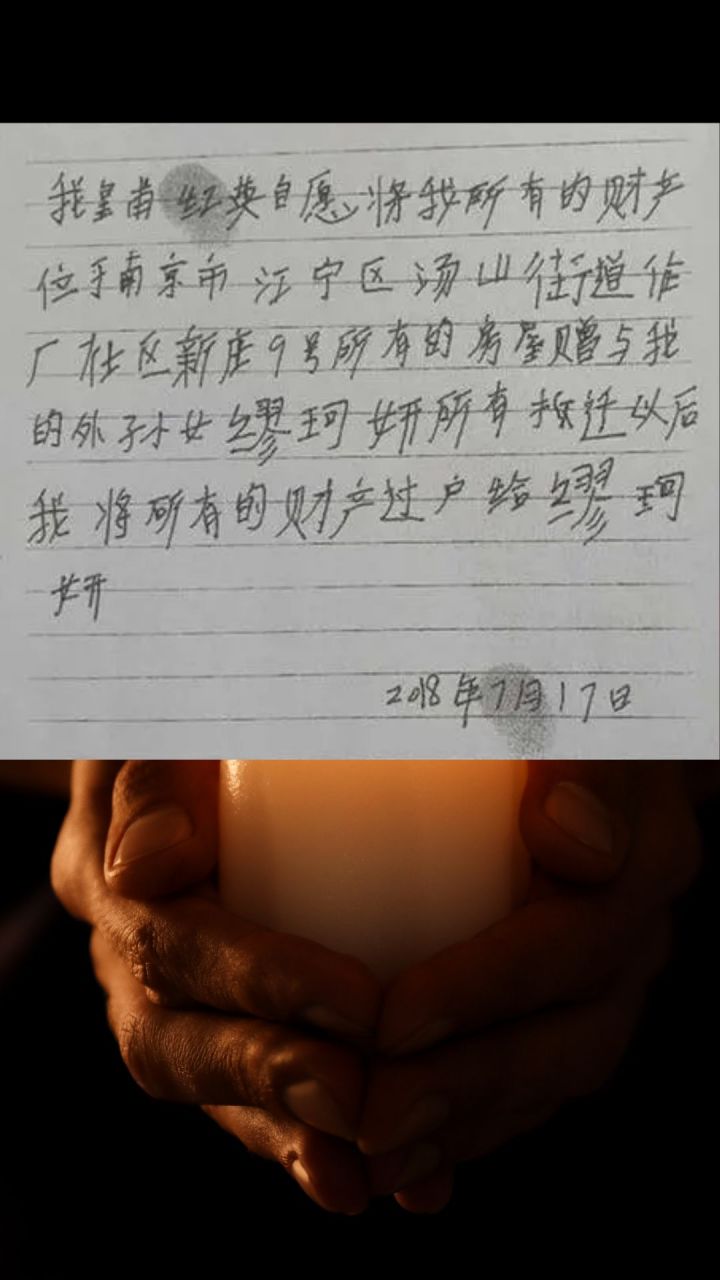 我皇甫红英自愿将我所有的财产
位于南京市江宁区汤山街道作
厂社区新庄9号所有的房屋赠与我
的外孙女缪珂妍所有拆迁以后
我将所有的财产过户给缪珂
妍
2018年7月17日